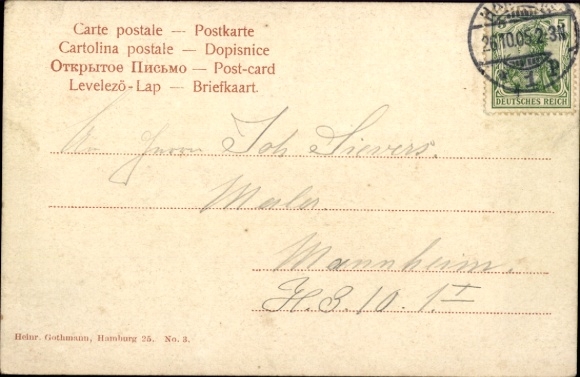 Carte postale — Postkarte
Cartolina postale — Dopisnice
Открытое Письмо — Post-card
Levelezö-Lap — Briefkaart.
26.10.05.2-3N
* 1 P
5
DEUTSCHES REICH
An Herrn Joh Sievers.
Maler
Mannheim.
H. 3. 10. 1 I
Heinr. Gothmann, Hamburg 25. No. 3.